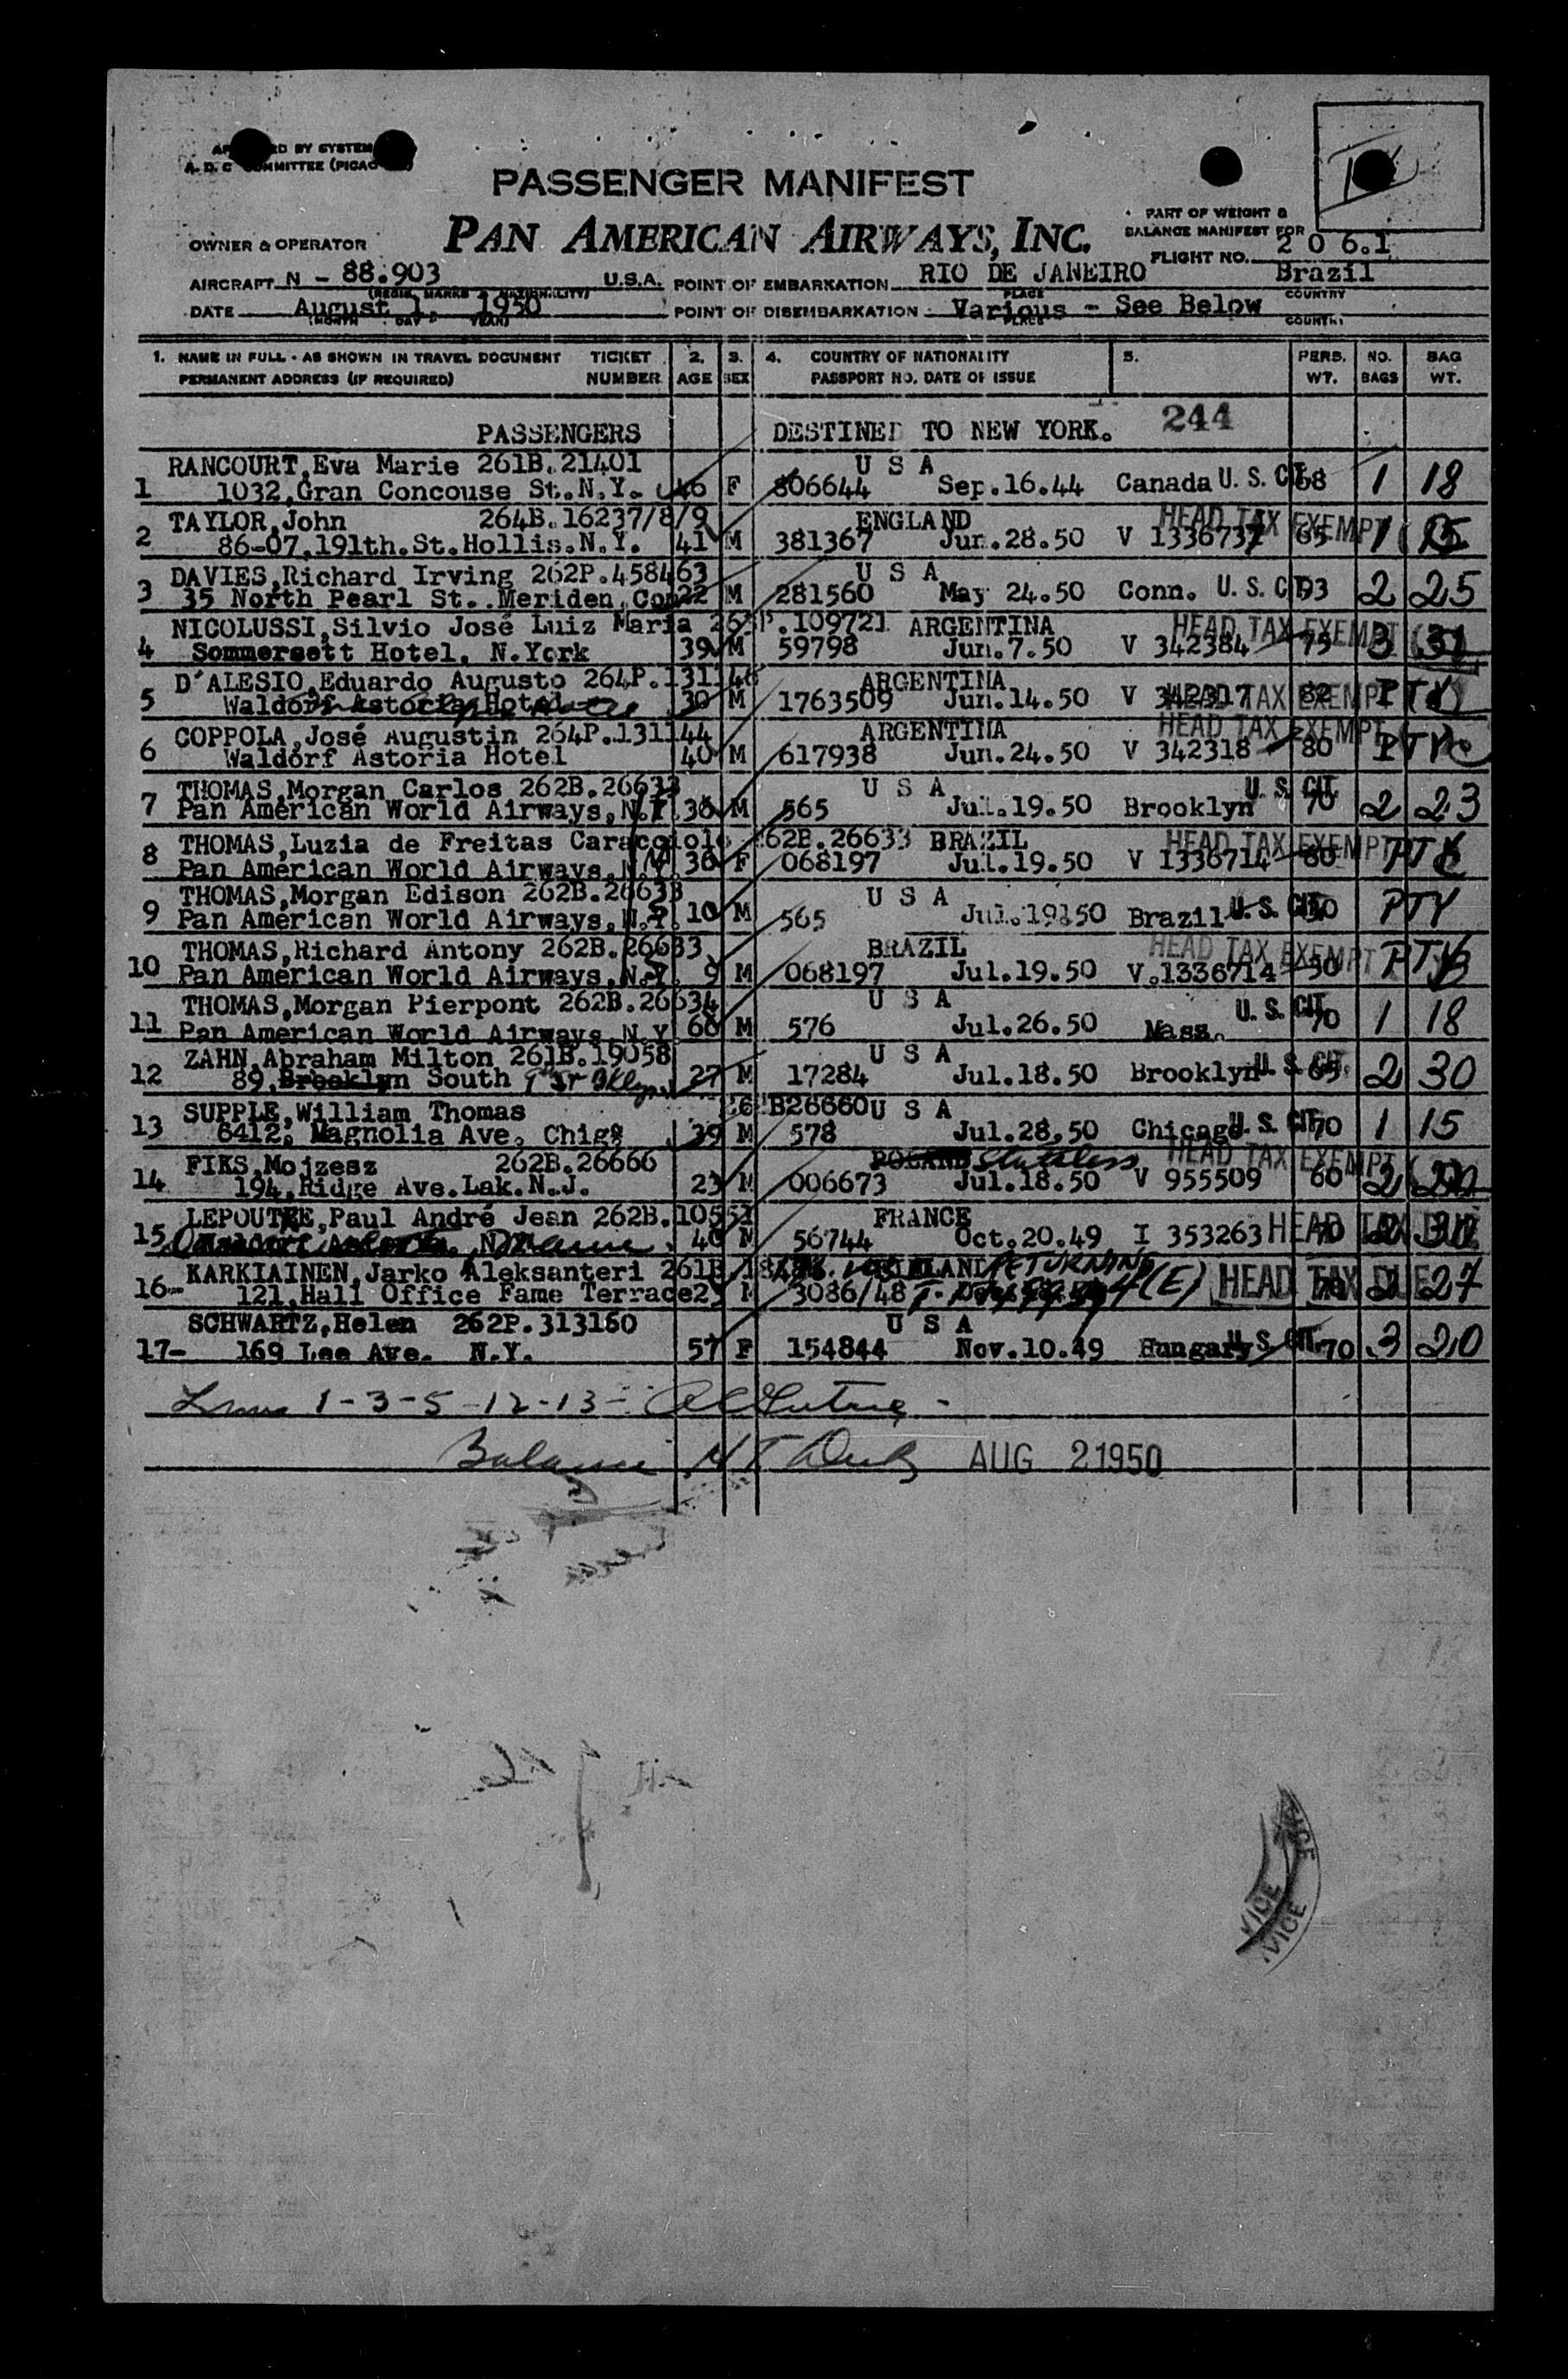 PASSENGER MANIFEST
PAN AMERICAN AIRWAYS, INC.
PART OF WEIGHT &
BALANCE MANIFEST FOR
OWNER & OPERATOR
FLIGHT NO. 2 0 6.1
AIRCRAFT N - 88.903 U.S.A. POINT OF EMBARKATION RIO DE JANEIRO Brazil
PLACE COUNTRY
DATE August 1, 1950 POINT OF DISEMBARKATION Various - See Below
1. NAME IN FULL - AS SHOWN IN TRAVEL DOCUMENT TICKET 2. 3. 4. COUNTRY OF NATIONALITY 5. PERS. NO. BAG
PERMANENT ADDRESS (IF REQUIRED) NUMBER AGE SEX PASSPORT NO. DATE OF ISSUE WT. BAGS WT.
PASSENGERS DESTINED TO NEW YORK. 244
RANCOURT,Eva Marie 261B.21401 U S A
1 1032,Gran Concouse St.N.Y. 46 F 806644 Sep.16.44 Canada U. S. CIT. 68 1 18
TAYLOR,John 264B.16237/8/9 ENGLAND HEAD TAX EXEMPT
2 86-07,191th.St.Hollis.N.Y. 41 M 381367 Jun.28.50 V 1336737 65 1
DAVIES,Richard Irving 262P.458463 U S A
3 35 North Pearl St..Meriden,Con 22 M 281560 May 24.50 Conn. U. S. CIT. 93 2 25
NICOLUSSI,Silvio José Luiz Maria 263P.109721 ARGENTINA HEAD TAX EXEMPT
4 Sommersett Hotel, N.York 39 M 59798 Jun.7.50 V 342384 75 3 31
D'ALESIO,Eduardo Augusto 264P.131146 ARGENTINA
5 Waldorf Astoria Hotel 30 M 1763509 Jun.14.50 V 342317 HEAD TAX EXEMPT 82 PTY
COPPOLA,José Augustin 264P.131144 ARGENTINA HEAD TAX EXEMPT
6 Waldorf Astoria Hotel 40 M 617938 Jun.24.50 V 342318 80 PTY
THOMAS,Morgan Carlos 262B.26633 U S A U. S. CIT.
7 Pan American World Airways,N.Y. 36 M 565 Jul.19.50 Brooklyn 70 2 23
THOMAS,Luzia de Freitas Caracoiolo 262B.26633 BRAZIL HEAD TAX EXEMPT
8 Pan American World Airways,N.Y. 36 F 068197 Jul.19.50 V 1336714 60 PTY
THOMAS,Morgan Edison 262B.26633 U S A
9 Pan American World Airways,N.Y. 10 M 565 Jul.19150 Brazil U. S. CIT. 30 PTY
THOMAS,Richard Antony 262B.26633 BRAZIL HEAD TAX EXEMPT
10 Pan American World Airways,N.Y. 9 M 068197 Jul.19.50 V.1336714 30 PTY
THOMAS,Morgan Pierpont 262B.26634 U S A U. S. CIT.
11 Pan American World Airways,N.Y. 68 M 576 Jul.26.50 Mass. 70 1 18
ZAHN,Abraham Milton 261B.19058 U S A
12 89,Brooklyn South 9th St Bklyn 27 M 17284 Jul.18.50 Brooklyn U. S. CIT. 65 2 30
SUPPLE,William Thomas 262B26660 U S A
13 6412, Magnolia Ave, Chigº 39 M 578 Jul.28,50 Chicago U. S. CIT. 70 1 15
FIKS,Mojzesz 262B.26666 POLAND Stateless HEAD TAX EXEMPT
14 194,Ridge Ave.Lak.N.J. 23 M 006673 Jul.18.50 V 955509 60 2 20
LEPOUTRE,Paul André Jean 262B.10551 FRANCE
15 40 M 56744 Oct.20.49 I 353263 HEAD TAX DUE 70 2 30
KARKIAINEN,Jarko Aleksanteri 261B RETURNING
16- 121,Hall Office Fame Terrace 3086/48 4(E) HEAD TAX DUE 2 27
SCHWARTZ,Helen 262P.313160 U S A
17- 169 Lee Ave. N.Y. 57 F 154844 Nov.10.49 Hungary U. S. CIT. 70 3 20
1-3-5-12-13-
Balance AUG 21950
VICE
VICE